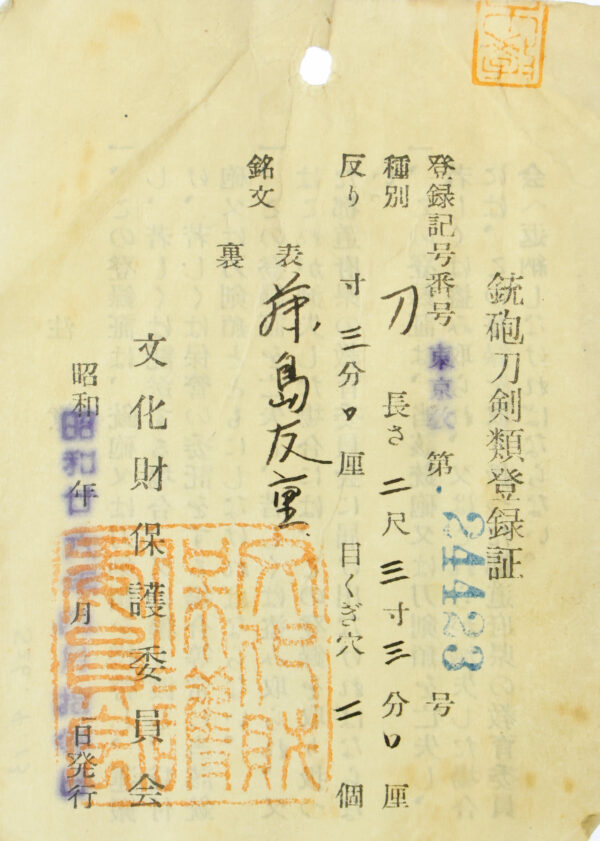 銃砲刀剣類登録証
登録記号番号 東京 第 24423 号
種別 刀 長さ 二尺三寸三分口厘
反り 寸三分口厘 目くぎ穴 二個
銘文 表 藤島友重
裏
文化財保護委員会
昭和 年 月 日発行